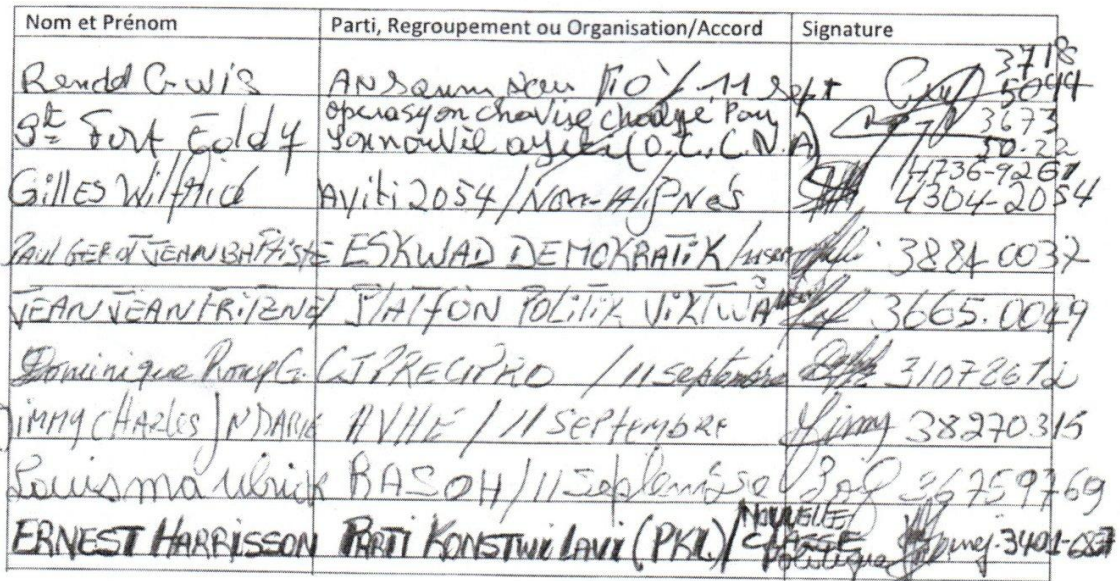 Nom et Prénom Parti, Regroupement ou Organisation/Accord Signature
Rendd C-wis 11 Sept 3718
5044
St Fort Eoldy operasyon chavire chodye Pou 3673
(O.C.C.N.A) 50.22
Gilles Wilfrid Ayiti 2054 / Non-AlignNés 4736-9267
4304-2054
PAUL GEROT JEAN BAPTISTE ESKWAD DEMOKRATIK / 3884 0037
JEAN JEAN FRITZNEL PLATFON POLITIK VIKTWA 3665.0049
Dominique G. / 11 septembre 31078612
JIMMY CHARLES JN DARME AVHE / 11 SEPTEMBRE Jimmy 38270315
Louisma ulrick BASOH / 11 Septembre 36759769
ERNEST HARRISSON PARTI KONSTWI LAVI (PKL) / NOUVELLE
CLASSE
Politique 3401-